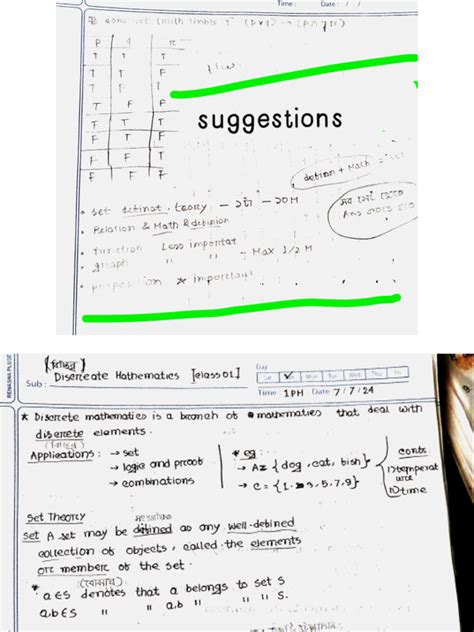 Time : Date : / /
construct truth table
P q r
T T T
T T F
T F
T F F
F T T
F T F
F F T
F F F
H.W.
suggestions
defination + Math =
• set definat. theory — ১টা — ১০ M
• Relation & Math & definion
• function Less importat
• graph " " 7 Max 1/2 M
• proposition * important
সব সেট থেকে
Ans
RENASHA PLUSZ
(বিচ্ছিন্ন)
Sub : Discreate Mathematics [class 01]
Day
Sat ✓ Mon Tue Wed Thu Fri
Time : 1PM Date 7/7/24
* Discrete mathematics is a branch of mathematics that deal with
discrete elements.
(বিচ্ছিন্ন)
Applications : → set
→ logic and proof
→ combinations
* eg :
→ A = { dog, cat, fish }
→ C = { 1, 3, 5, 7, 9 }
conts.
i) temperat
ure
ii) time
Set Theory
set A set may be defined as any well-defined
collection of objects, called the elements
or member of the set.
* a ∈ S denotes that a belongs to set S
a,b ∈ S " " a,b " " " S.